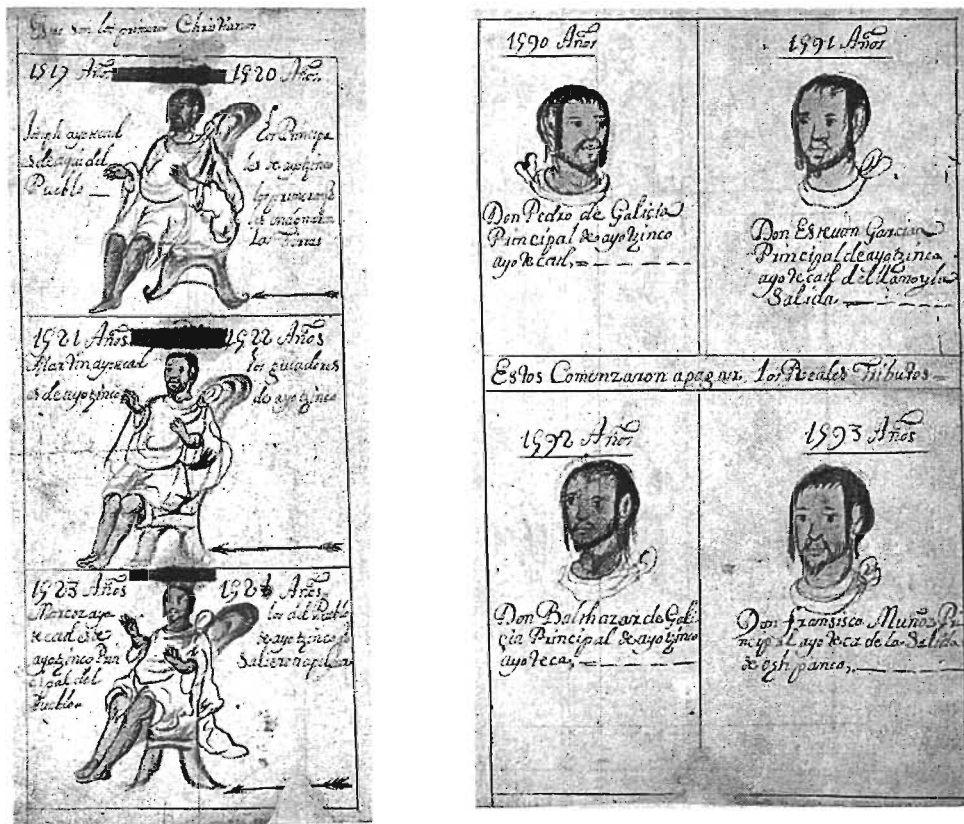 Estos son los primeros Christianos
1519 Años 1520 Años
Joseph ayotecatl
es de aqui del
Pueblo
Los Principa
les de ayotzinco
los primeros
Las Tierras
1521 Años 1522 Años
Martin ayotecatl
es de ayotzinco
los guiadores
de ayotzinco
1523 Años 1524 Años
Marcos ayo
tecatl es de
ayotzinco Prin
cipal del
Pueblo
los del Pueblo
de ayotzinco
Salieron a
1590 Años
Don Pedro de Galicia
Principal de ayotzinco
ayotecatl,
1591 Años
Don Estevan Garcia
Principal de ayotzinco
ayotecatl del llamo y la
Salida
Estos Comenzaron apagar, los Reales Tributos
1592 Años
Don Balthazar de Gali
cia Principal de ayotzinco
ayoteca,
1593 Años
Don Fransisco Muños Pri
ncipal ayoteca de la Salida
de oshpanco,